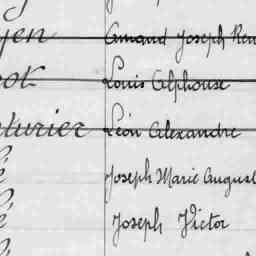 yen Armand Joseph Ren
ot Louis Alphonse
turier Léon Alexandre
é Joseph Marie August
é Joseph Victor